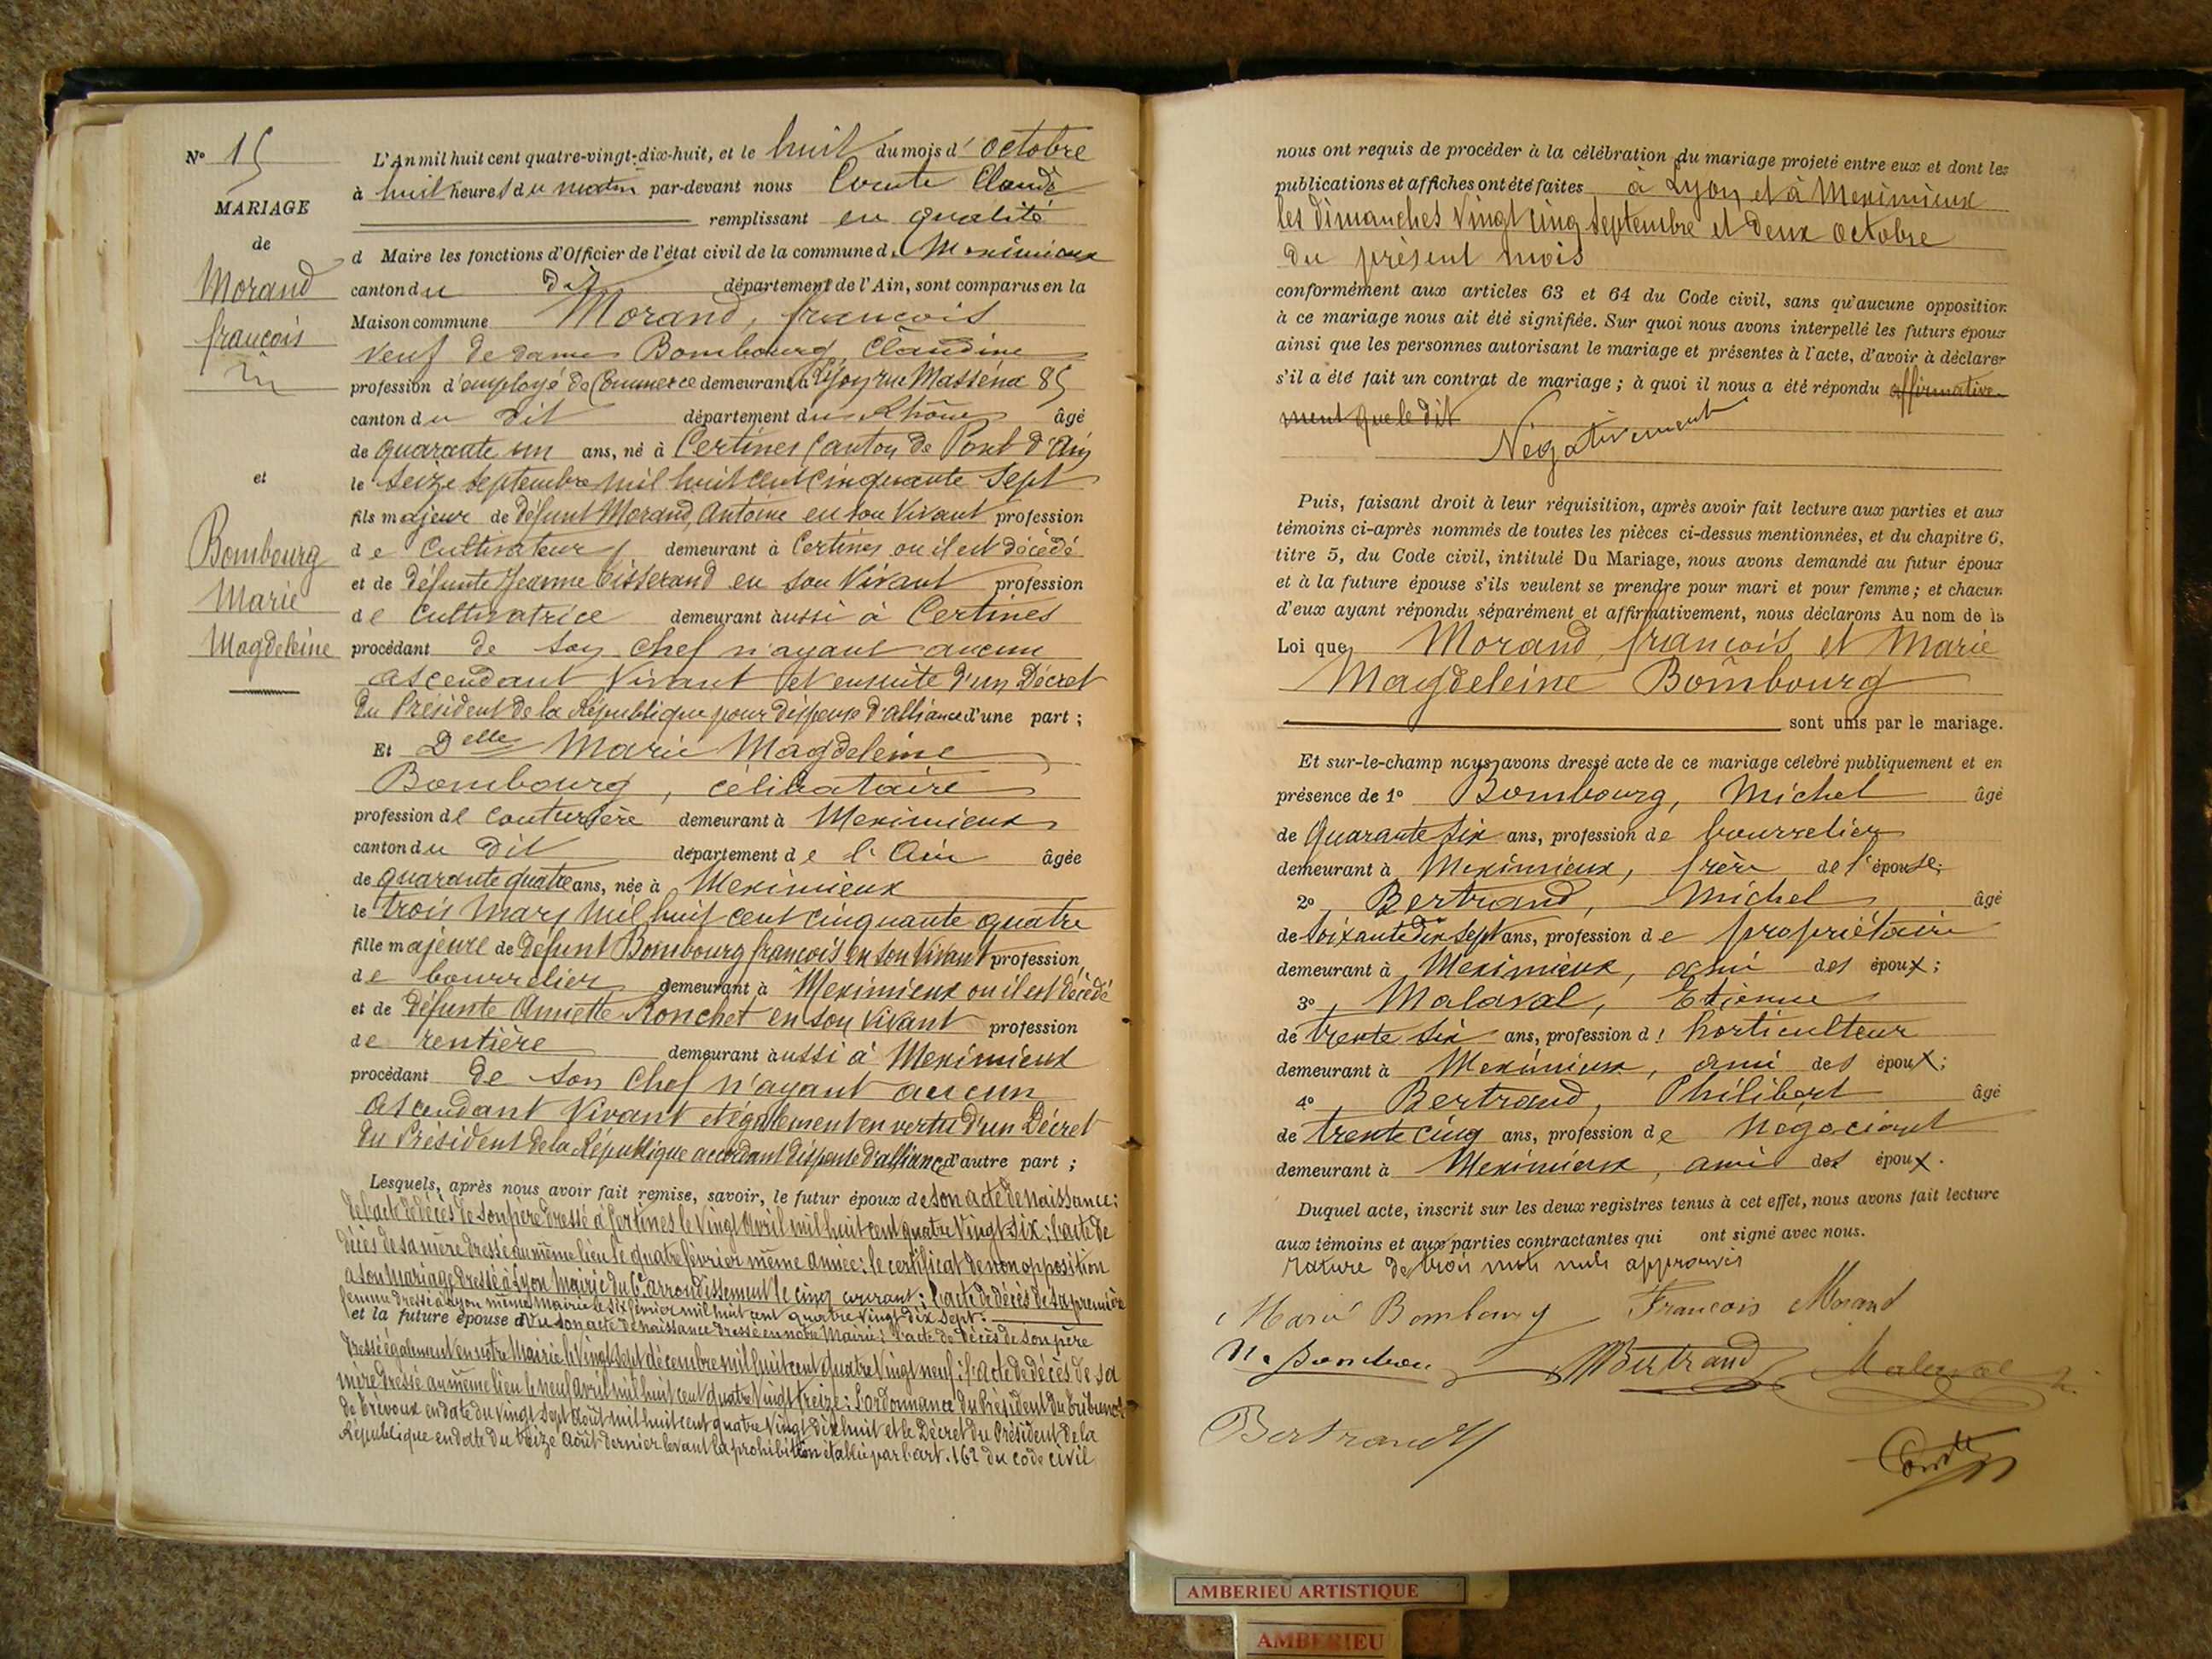 N° 15
MARIAGE
de
Morand
francois
et
Bombourg
Marie
Magdeleine
L'An mil huit cent quatre-vingt-dix-huit, et le huit du mois d'octobre
à huit heures du matin par-devant nous Comte Claude
remplissant en qualité
d Maire les fonctions d'Officier de l'état civil de la commune de Meximieux
canton du dit département de l'Ain, sont comparus en la
Maison commune Morand, francois
veuf de dame Bombourg Claudine
profession d'employé de Commerce demeurant à Lyon rue Masséna 85
canton du dit département du Rhône âgé
de quarante un ans, né à Certines canton de Pont d'Ain
le seize septembre mil huit cent cinquante sept
fils majeur de défunt Morand Antoine en son vivant profession
de cultivateur demeurant à Certines ou il est décédé
et de défunte Jeanne Tisserand en son vivant profession
de cultivatrice demeurant aussi à Certines
procédant de son chef n'ayant aucun
ascendant vivant et ensuite d'un Décret
du Président de la République pour dispense d'alliance d'une part ;
Et Delle Marie Magdeleine
Bombourg, célibataire
profession de couturière demeurant à Meximieux
canton du dit département de l'Ain âgée
de quarante quatre ans, née à Meximieux
le trois mars mil huit cent cinquante quatre
fille majeure de défunt Bombourg francois en son vivant profession
de bourrelier demeurant à Meximieux ou il est décédé
et de défunte Annette Ronchet en son vivant profession
de rentière demeurant aussi à Meximieux
procédant de son chef n'ayant aucun
ascendant vivant et également en vertu d'un Décret
du Président de la République accordant dispense d'alliance d'autre part ;
Lesquels, après nous avoir fait remise, savoir, le futur époux de son acte de naissance :
de l'acte de décès de son père dressé à Certines le vingt avril mil huit cent quatre vingt six ; l'acte de
décès de sa mère dressé au même lieu le quatre février même année : le certificat de non opposition
a son mariage dressé à Lyon Mairie du 6e arrondissement le cinq courant ; l'acte de décès de sa première
femme dressé à Lyon même mairie le six février mil huit cent quatre vingt dix sept.
et la future épouse d son acte de naissance dressé en notre Mairie ; l'acte de décès de son père
dressé également en notre Mairie le vingt sept décembre mil huit cent quatre vingt neuf ; l'acte de décès de sa
mère dressé au même lieu le neuf avril mil huit cent quatre vingt treize : l'ordonnance du Président du tribunal
de Trévoux en date du vingt sept août mil huit cent quatre vingt dix huit et le Décret du Président de la
République en date du treize août dernier levant la prohibition établie par l'art. 162 du code civil
nous ont requis de procéder à la célébration du mariage projeté entre eux et dont les
publications et affiches ont été faites à Lyon et à Meximieux
les dimanches vingt cinq septembre et deux octobre
du présent mois
conformément aux articles 63 et 64 du Code civil, sans qu'aucune opposition
à ce mariage nous ait été signifiée. Sur quoi nous avons interpellé les futurs époux
ainsi que les personnes autorisant le mariage et présentes à l'acte, d'avoir à déclarer
s'il a été fait un contrat de mariage ; à quoi il nous a été répondu affirmative-
ment que le dit
Négativement
Puis, faisant droit à leur réquisition, après avoir fait lecture aux parties et aux
témoins ci-après nommés de toutes les pièces ci-dessus mentionnées, et du chapitre 6,
titre 5, du Code civil, intitulé Du Mariage, nous avons demandé au futur époux
et à la future épouse s'ils veulent se prendre pour mari et pour femme ; et chacun
d'eux ayant répondu séparément et affirmativement, nous déclarons Au nom de la
Loi que Morand, francois et Marie
Magdeleine Bombourg
sont unis par le mariage.
Et sur-le-champ nous avons dressé acte de ce mariage célébré publiquement et en
présence de 1° Bombourg, Michel âgé
de quarante six ans, profession de bourrelier
demeurant à Meximieux, frère de l'épouse ;
2° Bertrand, Michel âgé
de soixante dix sept ans, profession de propriétaire
demeurant à Meximieux, ami des époux ;
3° Malaval, Etienne
de trente six ans, profession d' horticulteur
demeurant à Meximieux, ami des époux ;
4° Bertrand, Philibert âgé
de trente cinq ans, profession de négociant
demeurant à Meximieux, ami des époux.
Duquel acte, inscrit sur les deux registres tenus à cet effet, nous avons fait lecture
aux témoins et aux parties contractantes qui ont signé avec nous.
rature de trois mots nuls approuvés
Marie Bombourg Francois Morand
Bertrand Malaval
Bertrand
Comte
AMBERIEU ARTISTIQUE
AMBERIEU